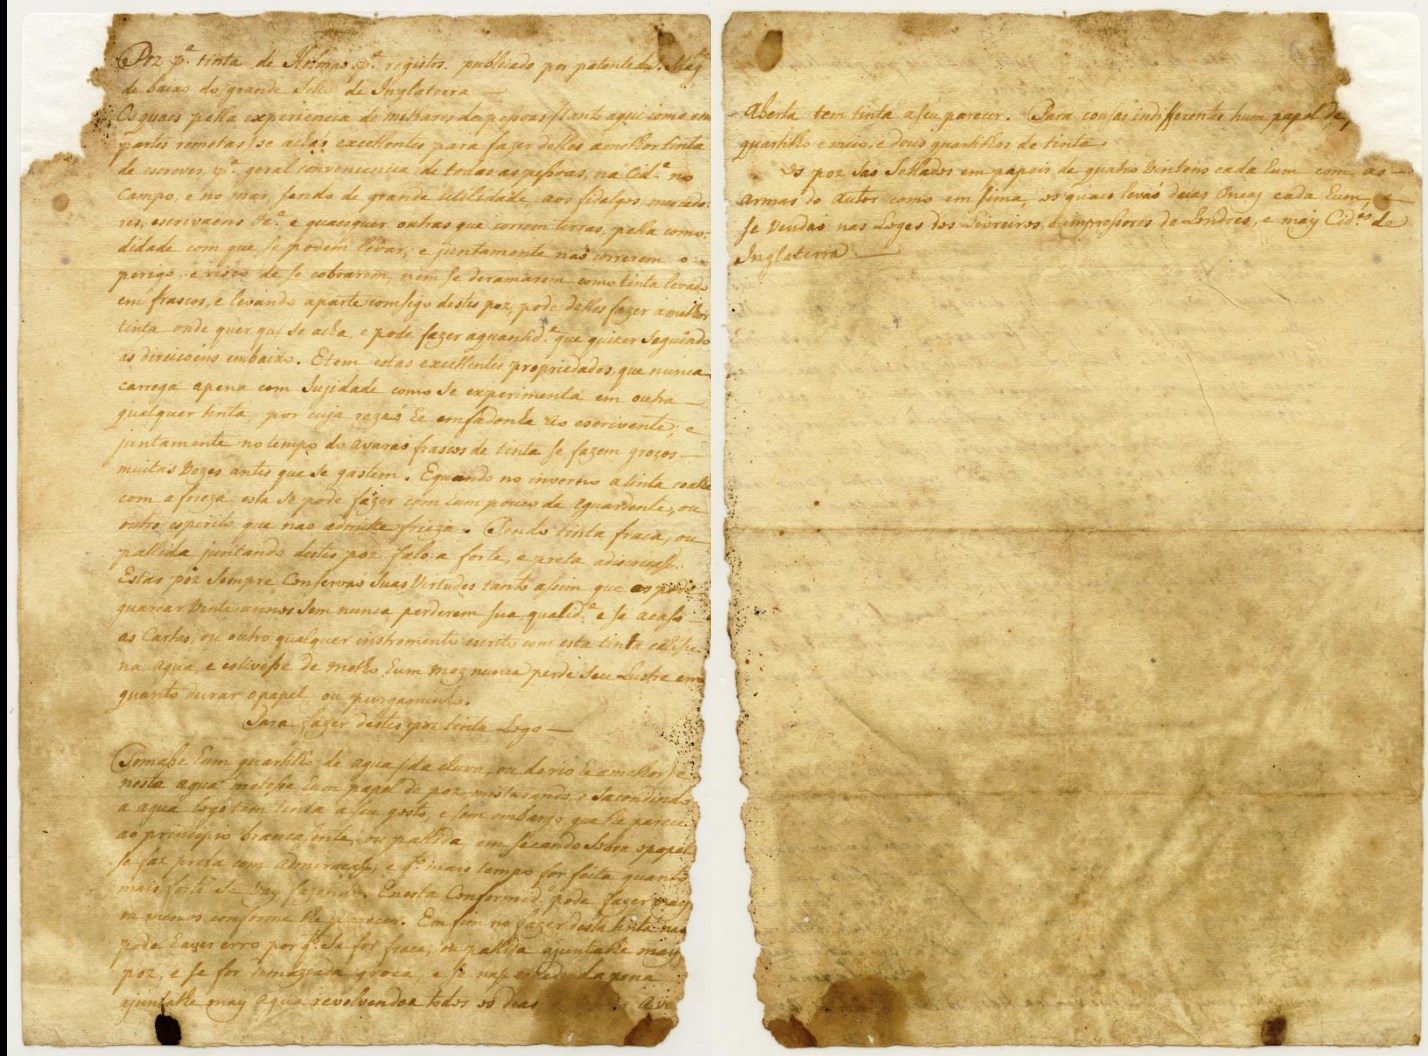 Poz p.ª tinta de Holman p.ª registos publicado por patente de S. Mag.
de baixo do grande Sello de Inglaterra —
Os quaes pella experiencia de milhares de pessoas (tanto aqui como em
partes remotas) se achaõ excellentes para fazer delles a melhor tinta
de escrever, p.ª geral conveniencia de todas as pessoas, na Cid.ª no
campo, e no mar, sendo de grande utilidade, aos fidalgos, mercado:
res, escrivaens &c.ª e quaesquer outras que correm terras, pella como:
didade com que se podem levar, e juntamente naõ correrem o
perigo, e risco de se cobrarem, nem se deramarem como tinta levada
em frascos, e levando aparte comsigo destes poz, pode delles fazer a melhor
tinta onde quer que se acha, e pode fazer a quantid.ª que quizer seguindo
as direiçoens embaixo. E tem estas excellentes propriedades, que nunca
carrega apena com Sujidade como se experimenta em outra —
qualquer tinta, por cuja rezaõ he emfadonha ao escrivente, e
juntamente no tempo do averaõ frascos de tinta se fazem groços —
muitas vezes antes que se gastem. E quando no inverno a tinta coalhe
com a frieza esta se pode fazer com hum pouco de Eguardente, ou
outro espirito que nao admitte frieza. Tendo tinta fraca, ou
pallida juntando destes poz falo a forte, e preta
Estas poz Sempre Conservaõ Suas Virtudes tanto assim que os pode
guardar Vinte annos Sem nunca perderem sua qualid.ª e se acaso
as Cartas, ou outro qualquer instromento escrito com esta tinta cahisse
na agua, e estivesse de molho hum mez nunca perde Seu Lustre em
quanto durar o papel ou purgaminho.
Para fazer destes poz tinta Logo —
Tomasse hum quartilho de agua (da chuva, ou do rio he a melhor) e
nesta agua metesse hum papel de poz, mesturando, e Sacondindo
a agua logo tem tinta a seu gosto, e sem embargo que lhe pareça
ao principio branca, ou pallida, em Secando Sobre o papel
se faz preta com admiraçaõ, e q.to mais tempo for feita quanto
mais forte Se vay fazendo. E nesta Conformid.ª pode fazer may
ou menos conforme lhe parecer. Em fim no fazer desta tinta naõ
pode haver erro por q. Se for fraca, ou pallida ajuntalhe may
poz, e se for demazzada groça, e se naõ da pena
ajuntelhe may agua revolvendoa todos os dias
Aberta tem tinta a seu parecer. Para cousas indifferentes hum papel de
quartilho e meio, e dous quartilhos de tinta.
Os poz saõ Sellados em papeis de quatro Vintens cada hum com as —
armas do Autor como em sima, os quais levaõ duas Onças cada hum,
se Vendaõ nas Loges dos Livreiros, & impressores de Londres, e may Cid.es de
Inglaterra —